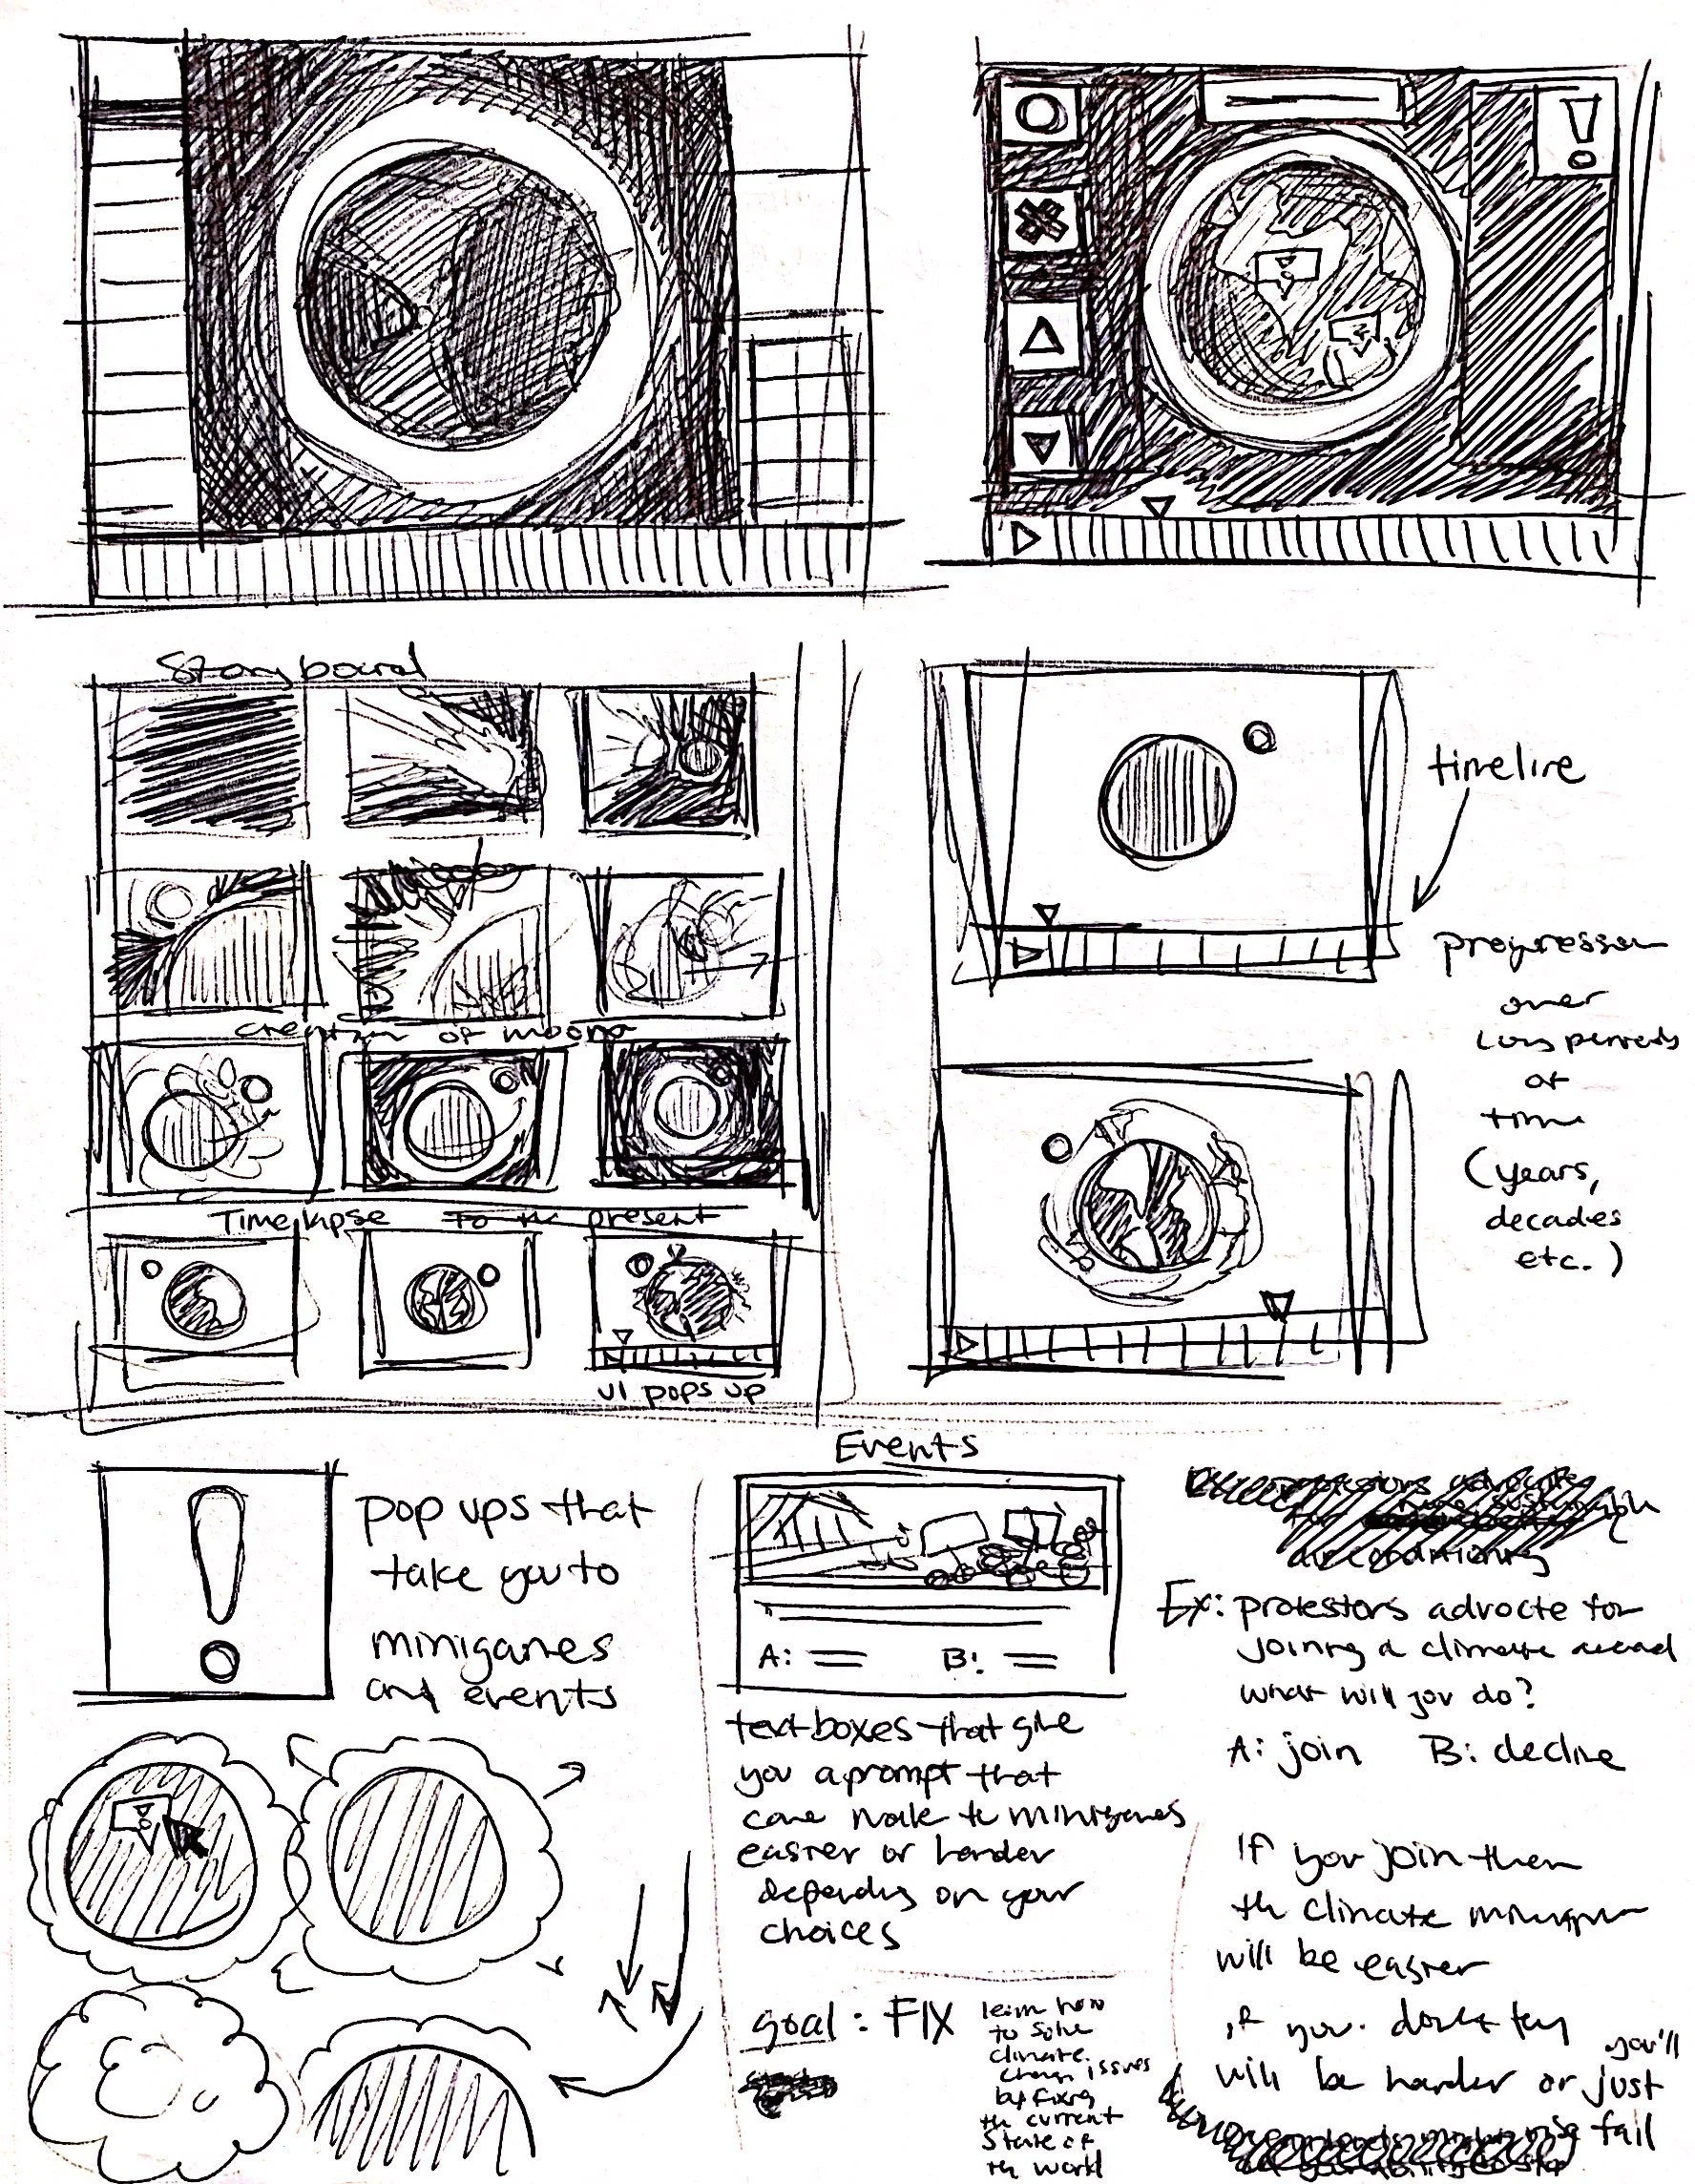 Storyboard
creation of moon
Timelapse to the present
UI pops up
timeline
progression
over
long periods
of
time
(years,
decades
etc.)
pop ups that
take you to
minigames
and events
Events
A:
B:
text boxes that give
you a prompt that
make the minigames
easier or harder
depending on your
choices
goal: FIX
learn how
to solve
climate
change issues
by fixing
the current
state of
the world
Ex: protestors advocte for
joining a climate accord
what will you do?
A: join B: decline
If you join then
the climate minigame
will be easier
if you don't they
will be harder or you'll just
fail